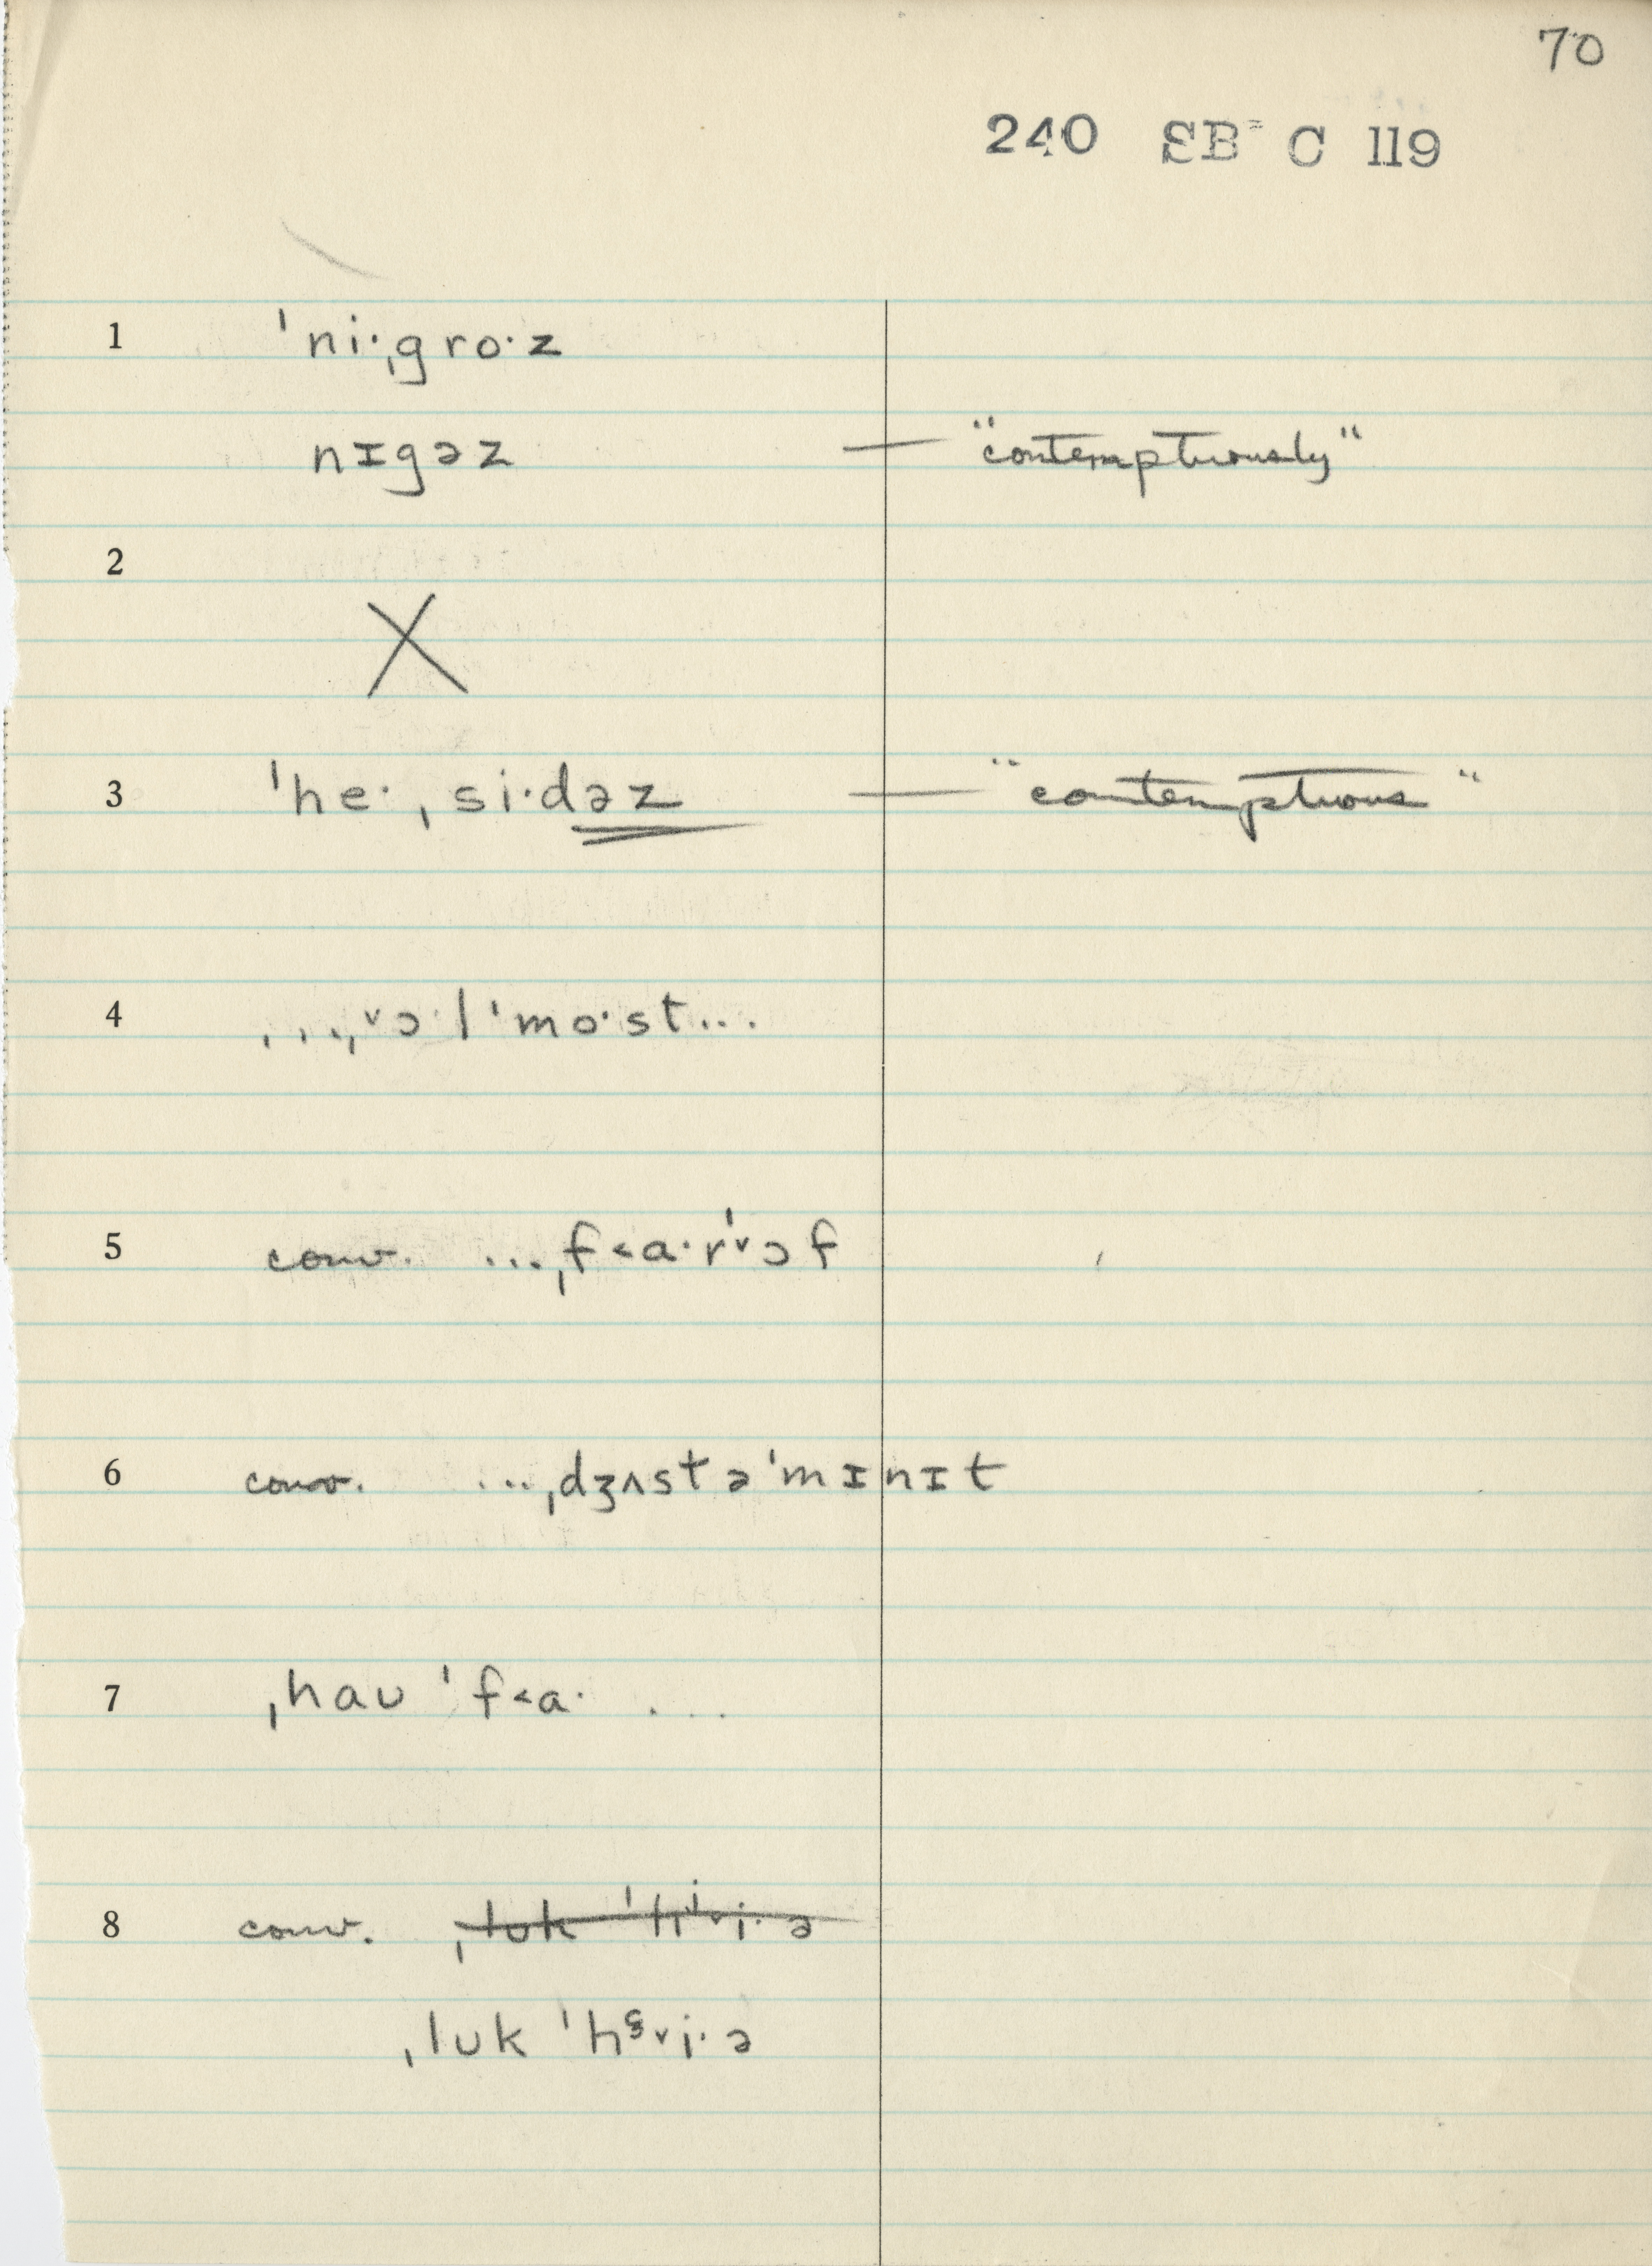 70
240 SB= C 119
1 ˈni·ˌgro·z
nɪgəz — "contemptuously"
2
X
3 ˈhe·ˌsi·dəz — "contemptuous"
4 ...ˌ˅ɔ·lˈmo·st...
5 conv. ...ˌf˂a·rˈ˅ɔf
6 conv. ...ˌdʒʌstəˈmɪnɪt
7 ˌhaʊ ˈf˂a· ...
8 conv.
ˌlʊk ˈh˅i·ə